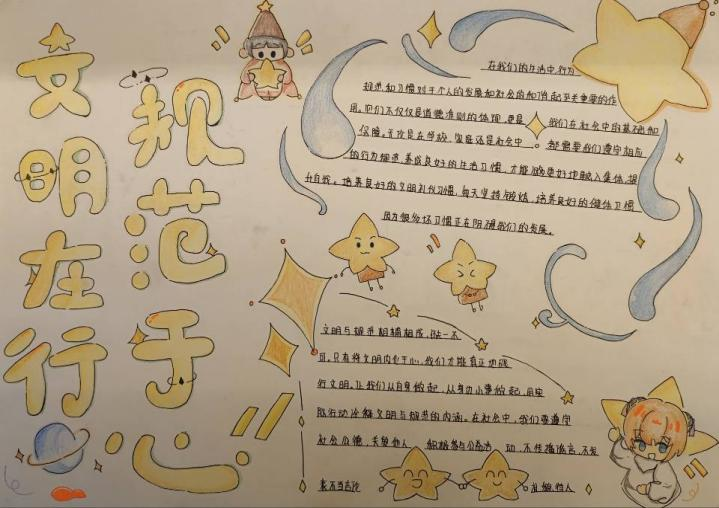 文明在行
规范于心
在我们的生活中,行为
规范和习惯对于个人的发展和社会的和谐起至关重要的作
用。它们不仅仅是道德准则的体现,更是 我们在社会中的基础和
保障。无论是在学校,家庭还是社会中。都需要我们遵守相应
的行为规范,养成良好的生活习惯,才能够更好地融入集体,提
升自我。培养良好的文明礼仪习惯,每天坚持锻炼,培养良好的健体卫惯
因为很多坏习惯正在阻碍我们的发展。
文明与规范相辅相成,缺一不
可。只有将文明内化于心,我们才能真正地践
行文明。让我们从自身做起,从身边小事做起,用实
际行动诠释文明与规范的内涵。在社会中,我们要遵守
社会公德,关爱他人 积极参与公益活 动,不传播谣言,不发
表不当言论